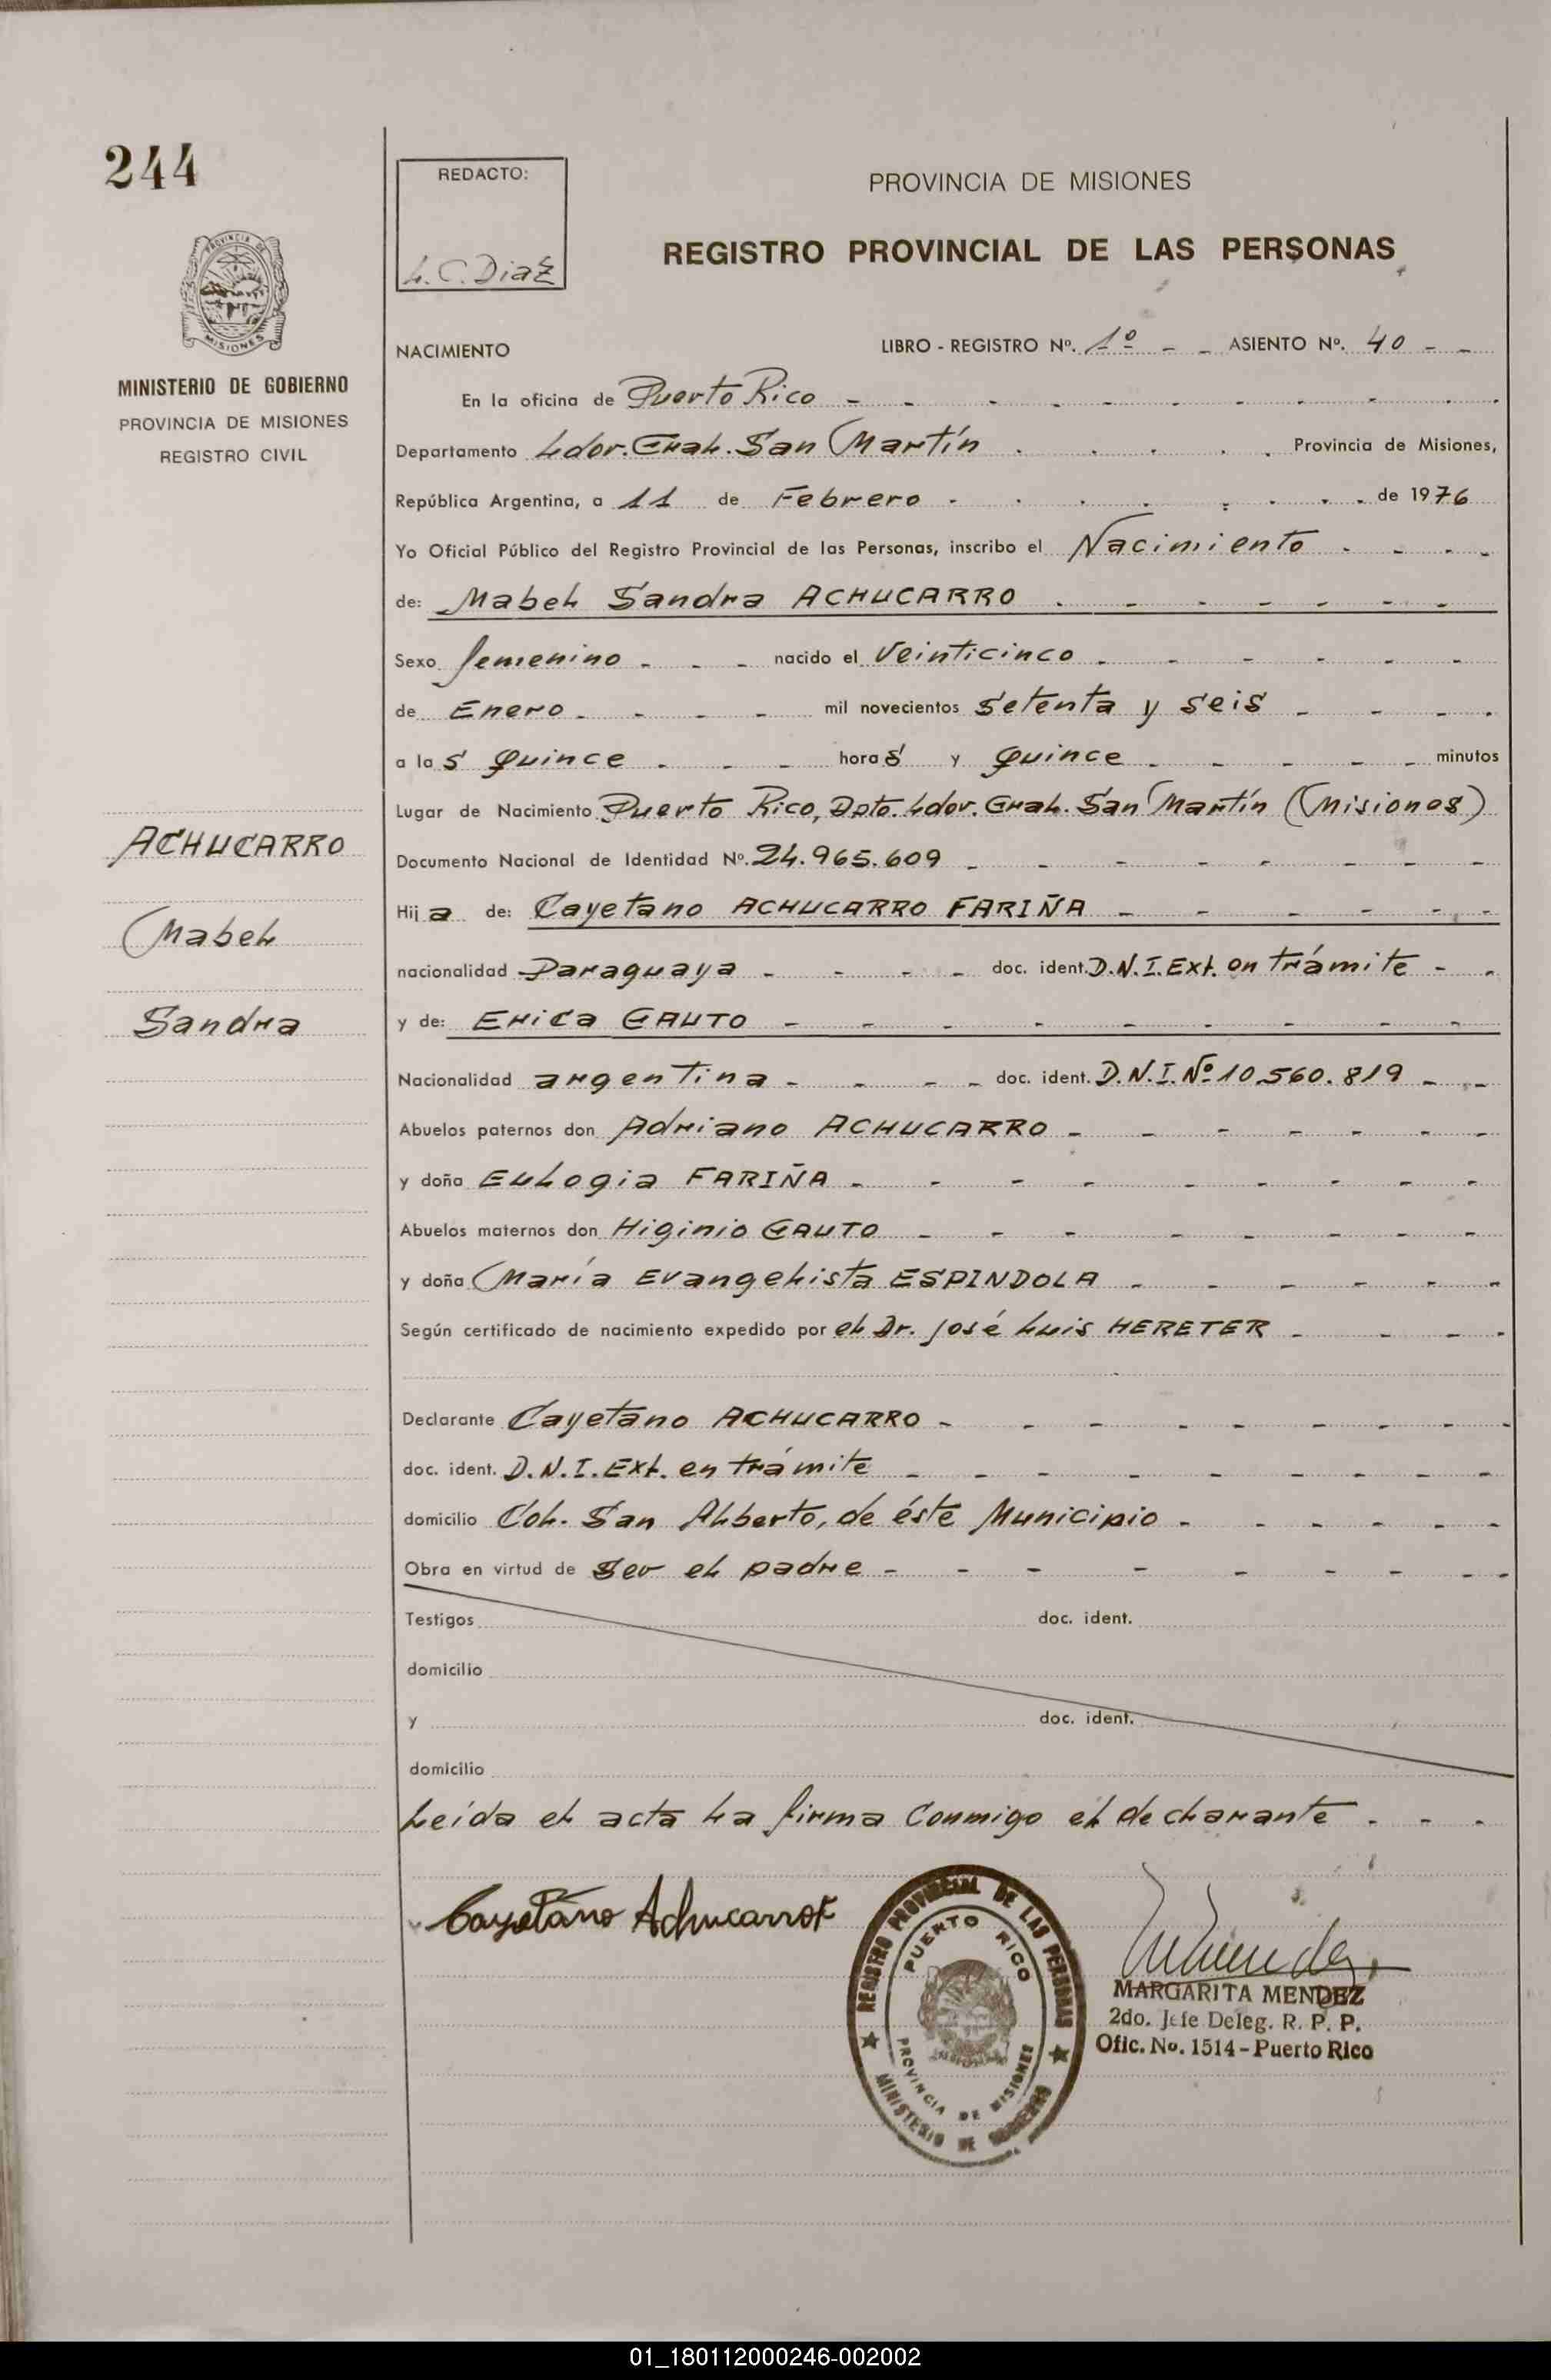 244
REDACTO:
L.C. Diaz
PROVINCIA DE MISIONES
REGISTRO PROVINCIAL DE LAS PERSONAS
PROVINCIA DE
MISIONES
MINISTERIO DE GOBIERNO
PROVINCIA DE MISIONES
REGISTRO CIVIL
NACIMIENTO LIBRO - REGISTRO Nº. 1º - - ASIENTO Nº. 40 - -
En la oficina de Puerto Rico
Departamento Ldor. Gral. San Martín Provincia de Misiones,
República Argentina, a 11 de Febrero de 1976
Yo Oficial Público del Registro Provincial de las Personas, inscribo el Nacimiento
de: Mabel Sandra ACHUCARRO
Sexo femenino nacido el Veinticinco
de Enero mil novecientos setenta y seis
a las quince horas y quince minutos
Lugar de Nacimiento Puerto Rico, Dpto. Ldor. Gral. San Martín (Misiones)
Documento Nacional de Identidad Nº. 24.965.609
Hija de: Cayetano ACHUCARRO FARIÑA
nacionalidad Paraguaya doc. ident. D.N.I. Ext. en trámite
y de: Erica GAUTO
Nacionalidad argentina doc. ident. D.N.I. Nº 10.560.819
Abuelos paternos don Adriano ACHUCARRO
y doña Eulogia FARIÑA
Abuelos maternos don Higinio GAUTO
y doña María Evangelista ESPINDOLA
Según certificado de nacimiento expedido por el Dr. José Luis HERETER
Declarante Cayetano ACHUCARRO
doc. ident. D.N.I. Ext. en trámite
domicilio Col. San Alberto, de éste Municipio
Obra en virtud de ser el padre
Testigos doc. ident.
domicilio
y doc. ident.
domicilio
Leída el acta la firma conmigo el declarante
ACHUCARRO
Mabel
Sandra
Cayetano Achucarro F
REGISTRO PROVINCIAL DE LAS PERSONAS
PUERTO RICO
PROVINCIA DE MISIONES
MINISTERIO DE GOBIERNO
MARGARITA MENDEZ
2do. Jefe Deleg. R. P. P.
Ofic. No. 1514 - Puerto Rico
01_180112000246-002002